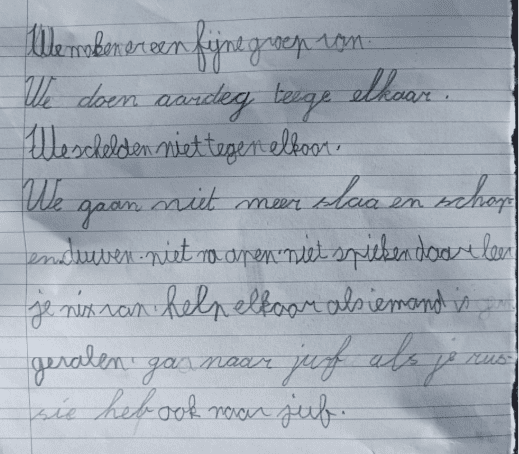 We maken er een fijne groep van.
We doen aardeg teege elkaar.
We schelden niet tegen elkaar.
We gaan niet meer slaa en schop
en duuwen. niet na apen. niet spieken daar leer
je nix van. help elkaar als iemand is
gevalen. ga naar juf als je rus
sie heb ook naar juf.